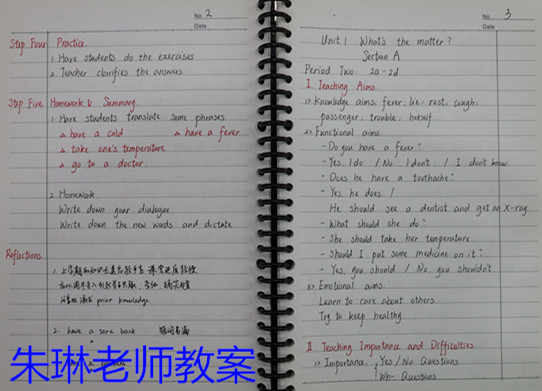 No. 2
Date
Step Four Practice.
1. Have students do the exercises
2. Teacher clarifies the answers.
Step Five Homework & Summary.
1. Have students translate some phrases.
△ have a cold △ have a fever
△ take one's temperature
△ go to a doctor
2. Homework
Write down your dialogue
Write down the new words and dictate
Reflections
prior knowledge.
2. have a sore back
朱琳老师教案
No. 3
Date
Unit 1 What's the matter?
Section A
Period Two 2a-2d
I. Teaching Aims.
1) Knowledge aims: fever, lie, rest, cough,
passenger, trouble, herself
2) Functional aims.
- Do you have a fever?
- Yes, I do. / No, I don't. / I don't know
- Does he have a toothache?
- Yes, he does. /
He should see a dentist and get an X-ray.
- What should she do?
- She should take her temperature.
- Should I put some medicine on it?
- Yes, you should / No, you shouldn't
3) Emotional aims.
Learn to care about others.
Try to keep healthy.
II. Teaching Importance and Difficulties
1) Importance: Yes / No Questions
Wh- Questions